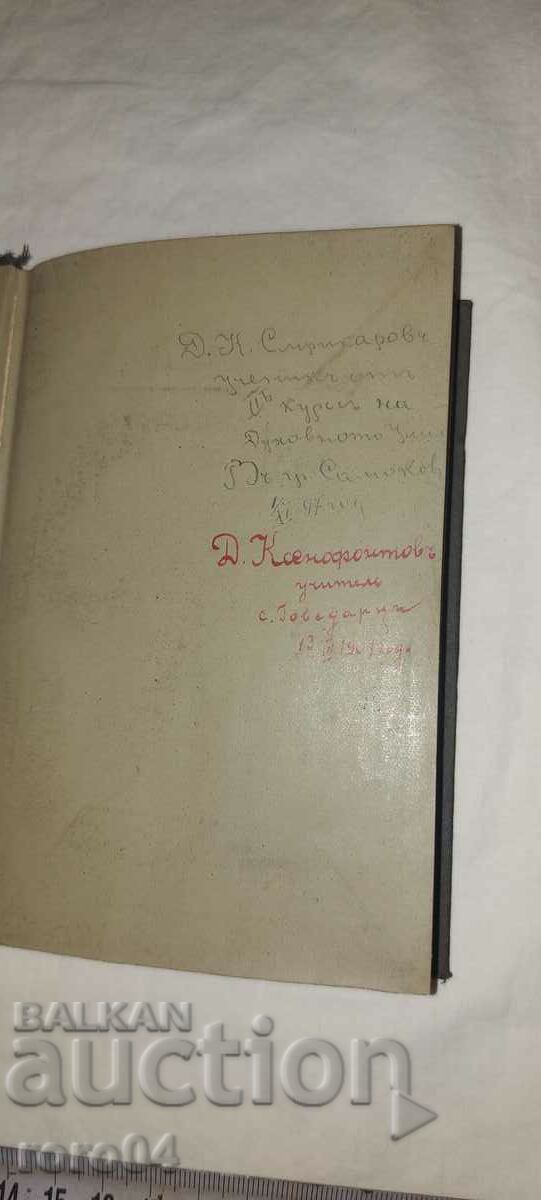 Д. К. Смрикаровъ
ученикъ отъ
II курсъ на
Духовното
Въ гр. Самоков
97 год
Д. Ксенофонтовъ
учитель
с. Говедарци
13 года
BALKAN
auction
roro04
14 15